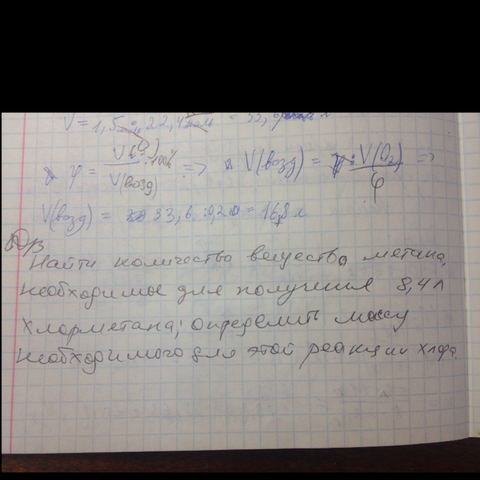 V = 1,5 моль · 22,4
φ = V(O₂) · 100% / V(возд) => V(возд) = V(O₂) / φ =>
V(возд) = 33,6 : 0,2 = 168 л
Д/з
Найти количество вещества метана,
необходимое для получения 8,4 л
хлорметана; определить массу
необходимого для этой реакции хлора.